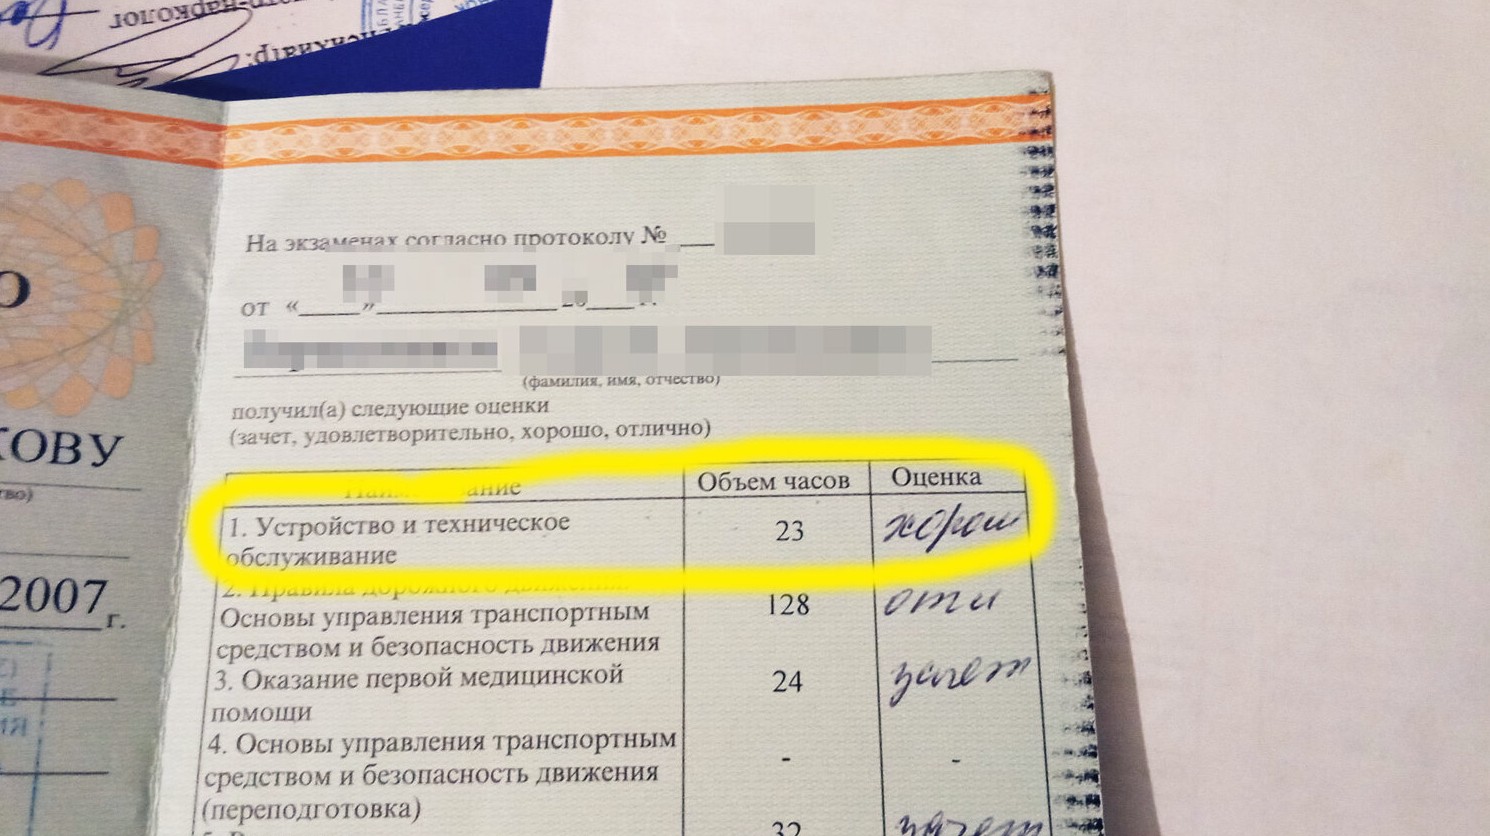 психиатр-нарколог
психиатр:
О
КОВУ
2007 г.
На экзаменах согласно протоколу №
от « »
(фамилия, имя, отчество)
получил(а) следующие оценки
(зачет, удовлетворительно, хорошо, отлично)
Наименование Объем часов Оценка
1. Устройство и техническое
обслуживание 23 хорош
2. Правила дорожного движения.
Основы управления транспортным 128 отл
средством и безопасность движения
3. Оказание первой медицинской 24 зачет
помощи
4. Основы управления транспортным
средством и безопасность движения - -
(переподготовка)
32 зачет